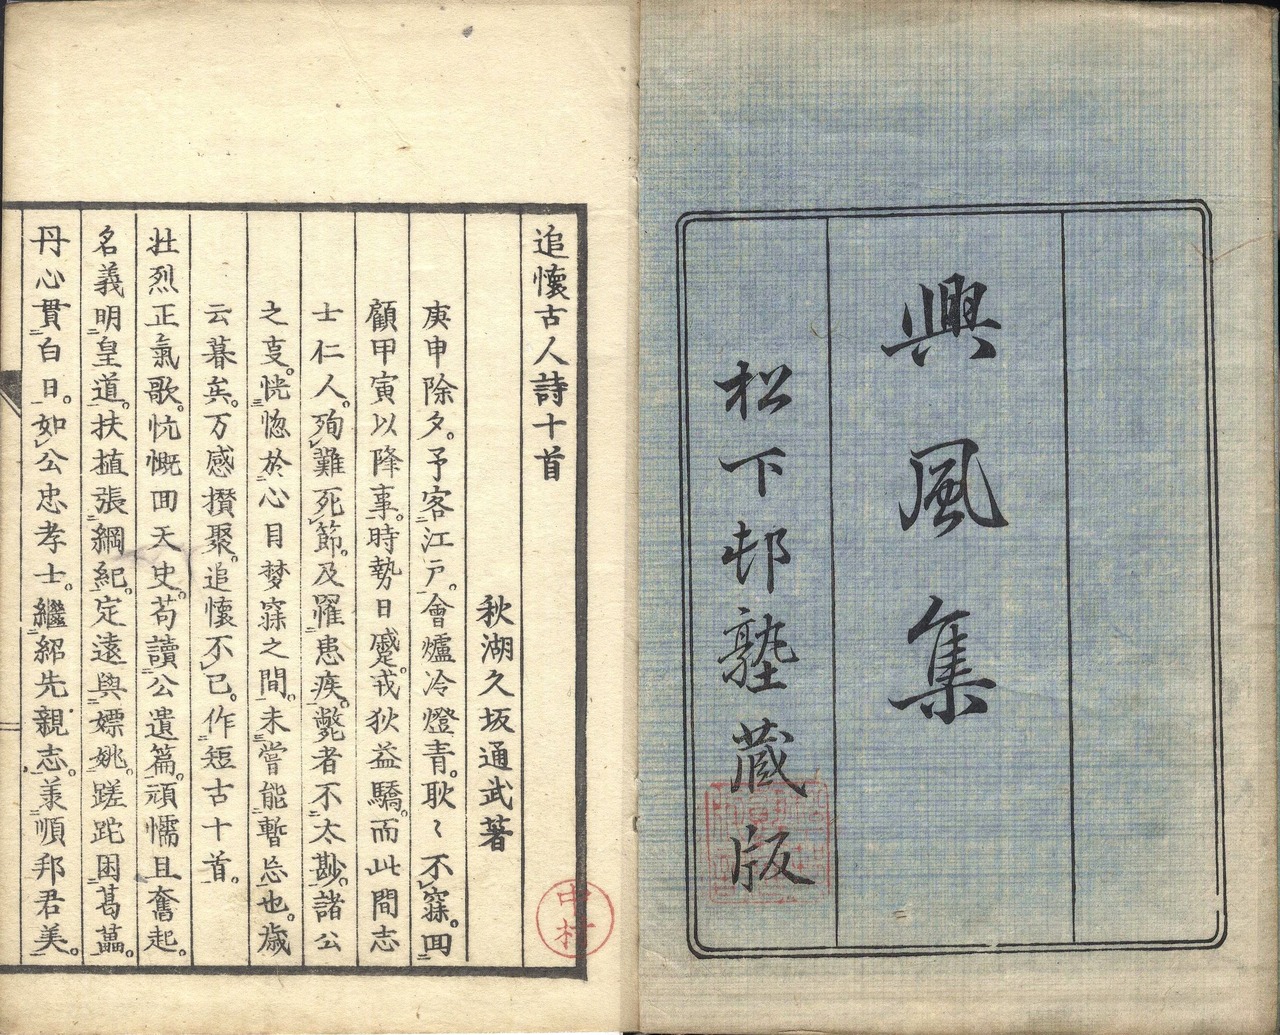 興風集
松下邨塾蔵版
追懐古人詩十首
秋湖久坂通武著
庚申除夕。予客江戸。會爐冷燈青。耿〻不寐。回
顧甲寅以降事。時勢日蹙。戎狄益驕。而此間志
士仁人。殉難死節。及罹患疾。斃者不太尠。諸公
之叓。恍惚於心目梦寐之間。未嘗能暫忘也。歳
云暮矣。万感攅聚。追懐不已。作短古十首。
壮烈正氣歌。忼慨回天史。苟讀公遺篇。頑懦且奮起。
名義明皇道。扶植張綱紀。定遠與嫖姚。蹉跎困葛藟。
丹心貫白日。如公忠孝士。繼紹先親志。羕順邦君美。
中村